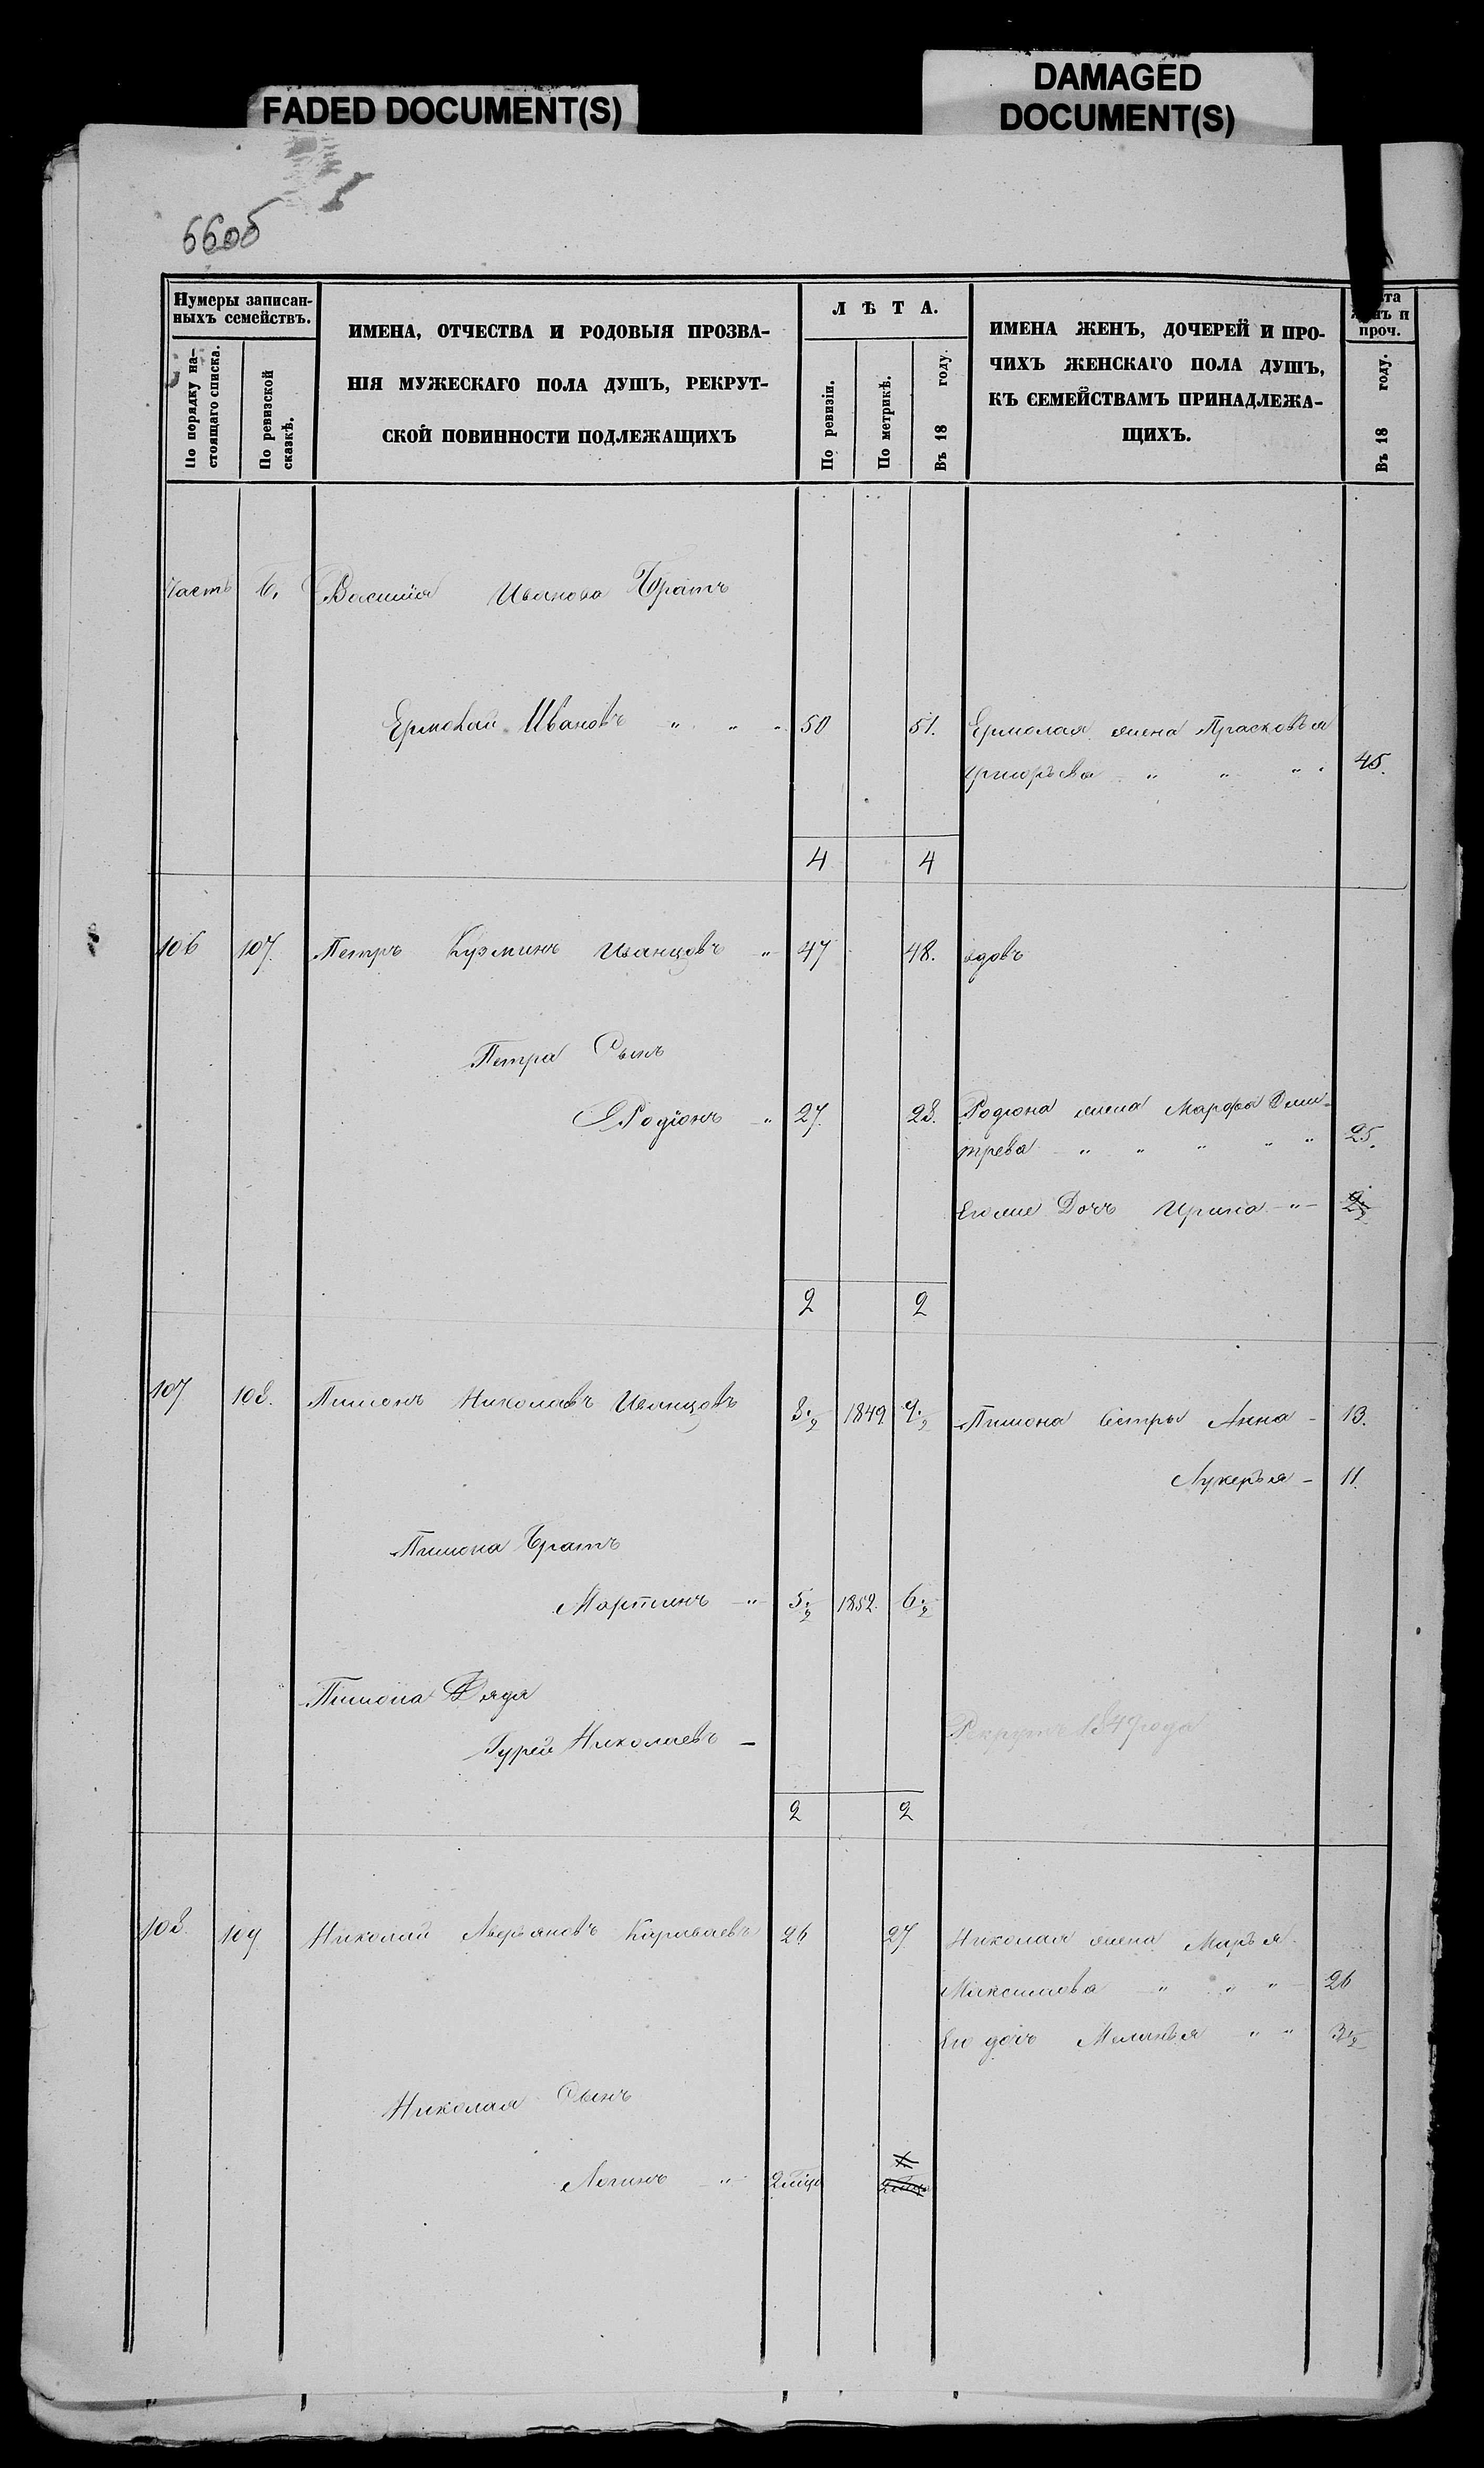 FADED DOCUMENT(S)
DAMAGED
DOCUMENT(S)
66об
Нумеры записан-
ныхъ семействъ.
По порядку на-
стоящаго списка.
По ревизской
сказкѣ.
ИМЕНА, ОТЧЕСТВА И РОДОВЫЯ ПРОЗВА-
НІЯ МУЖЕСКАГО ПОЛА ДУШЪ, РЕКРУТ-
СКОЙ ПОВИННОСТИ ПОДЛЕЖАЩИХЪ
ЛѢТА.
По ревизіи.
По метрикѣ.
Въ 18 году.
ИМЕНА ЖЕНЪ, ДОЧЕРЕЙ И ПРО-
ЧИХЪ ЖЕНСКАГО ПОЛА ДУШЪ,
КЪ СЕМЕЙСТВАМЪ ПРИНАДЛЕЖА-
ЩИХЪ.
проч.
Въ 18 году.
Часть Василія Иванова Братъ
Ермолай Ивановъ " " " 50 51. Ермолая жена Прасковья
Григорьева " " " " 45.
4 4
106 107. Петръ Кузминъ Иванцовъ " 47 48. вдовъ
Петра Сынъ
Родіонъ " 27. 28. Родіона жена Марфа Дми-
трева " " " " " 25.
Дочь Ирина "
2 2
107 108. Пимонъ Николаевъ Иванцовъ 8 ½ 1849 9 ½ Пимона Сестры Анна - 13.
Лукерья - 11.
Пимона Братъ
Мартинъ " 5 ½ 1852. 6 ½
Пимона Дядя
Гурей Николаевъ - Рекрутъ 1849 года
2 2
108 109 Николай Аверьяновъ Караваевъ 26 27. Николая жена Марья
Максимова " " " 26
Его дочь Меланья " " 3 ½
Николая Сынъ
Логинъ " 2 мѣця